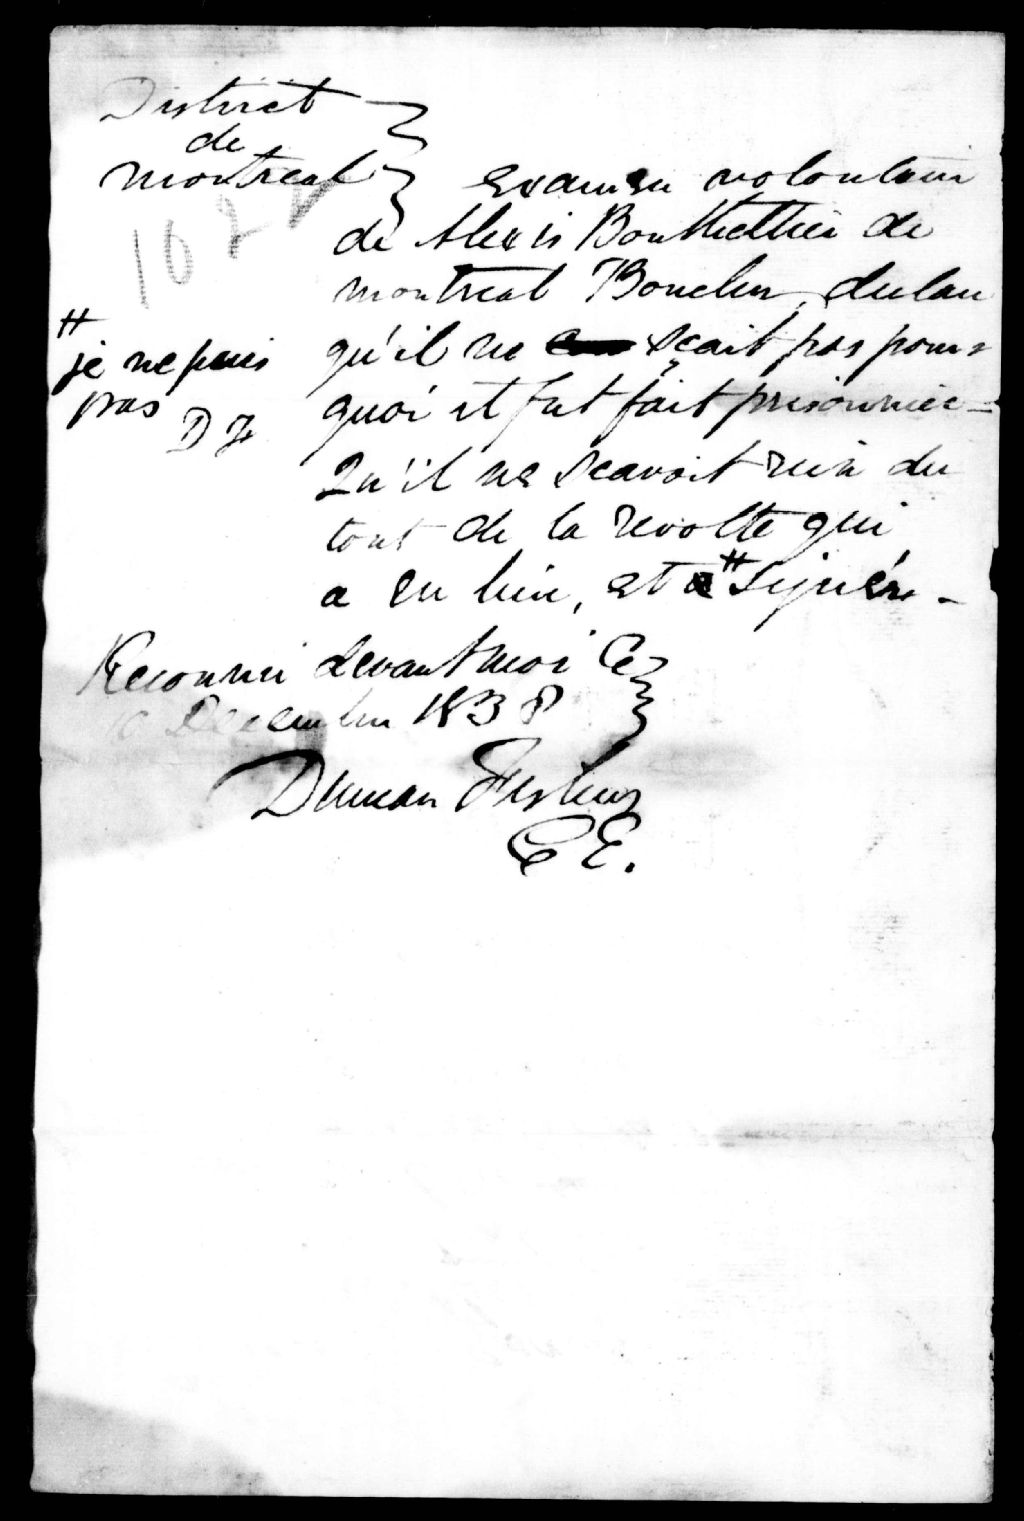 District
de
montreal
162
examen volontair
de Alexis Bouthellier de
montreal Boucher, declare
qu'il ne sçait pas pour
quoi it fut fait prisonnier =
Qu'il ne scavoit rien du
tout de la revolte qui
a eu lieu, et # signér -
#
je ne puis
pas
D F
Reconnu devant moi Ce
Decembre 1838
Duncan Fisher
C E.